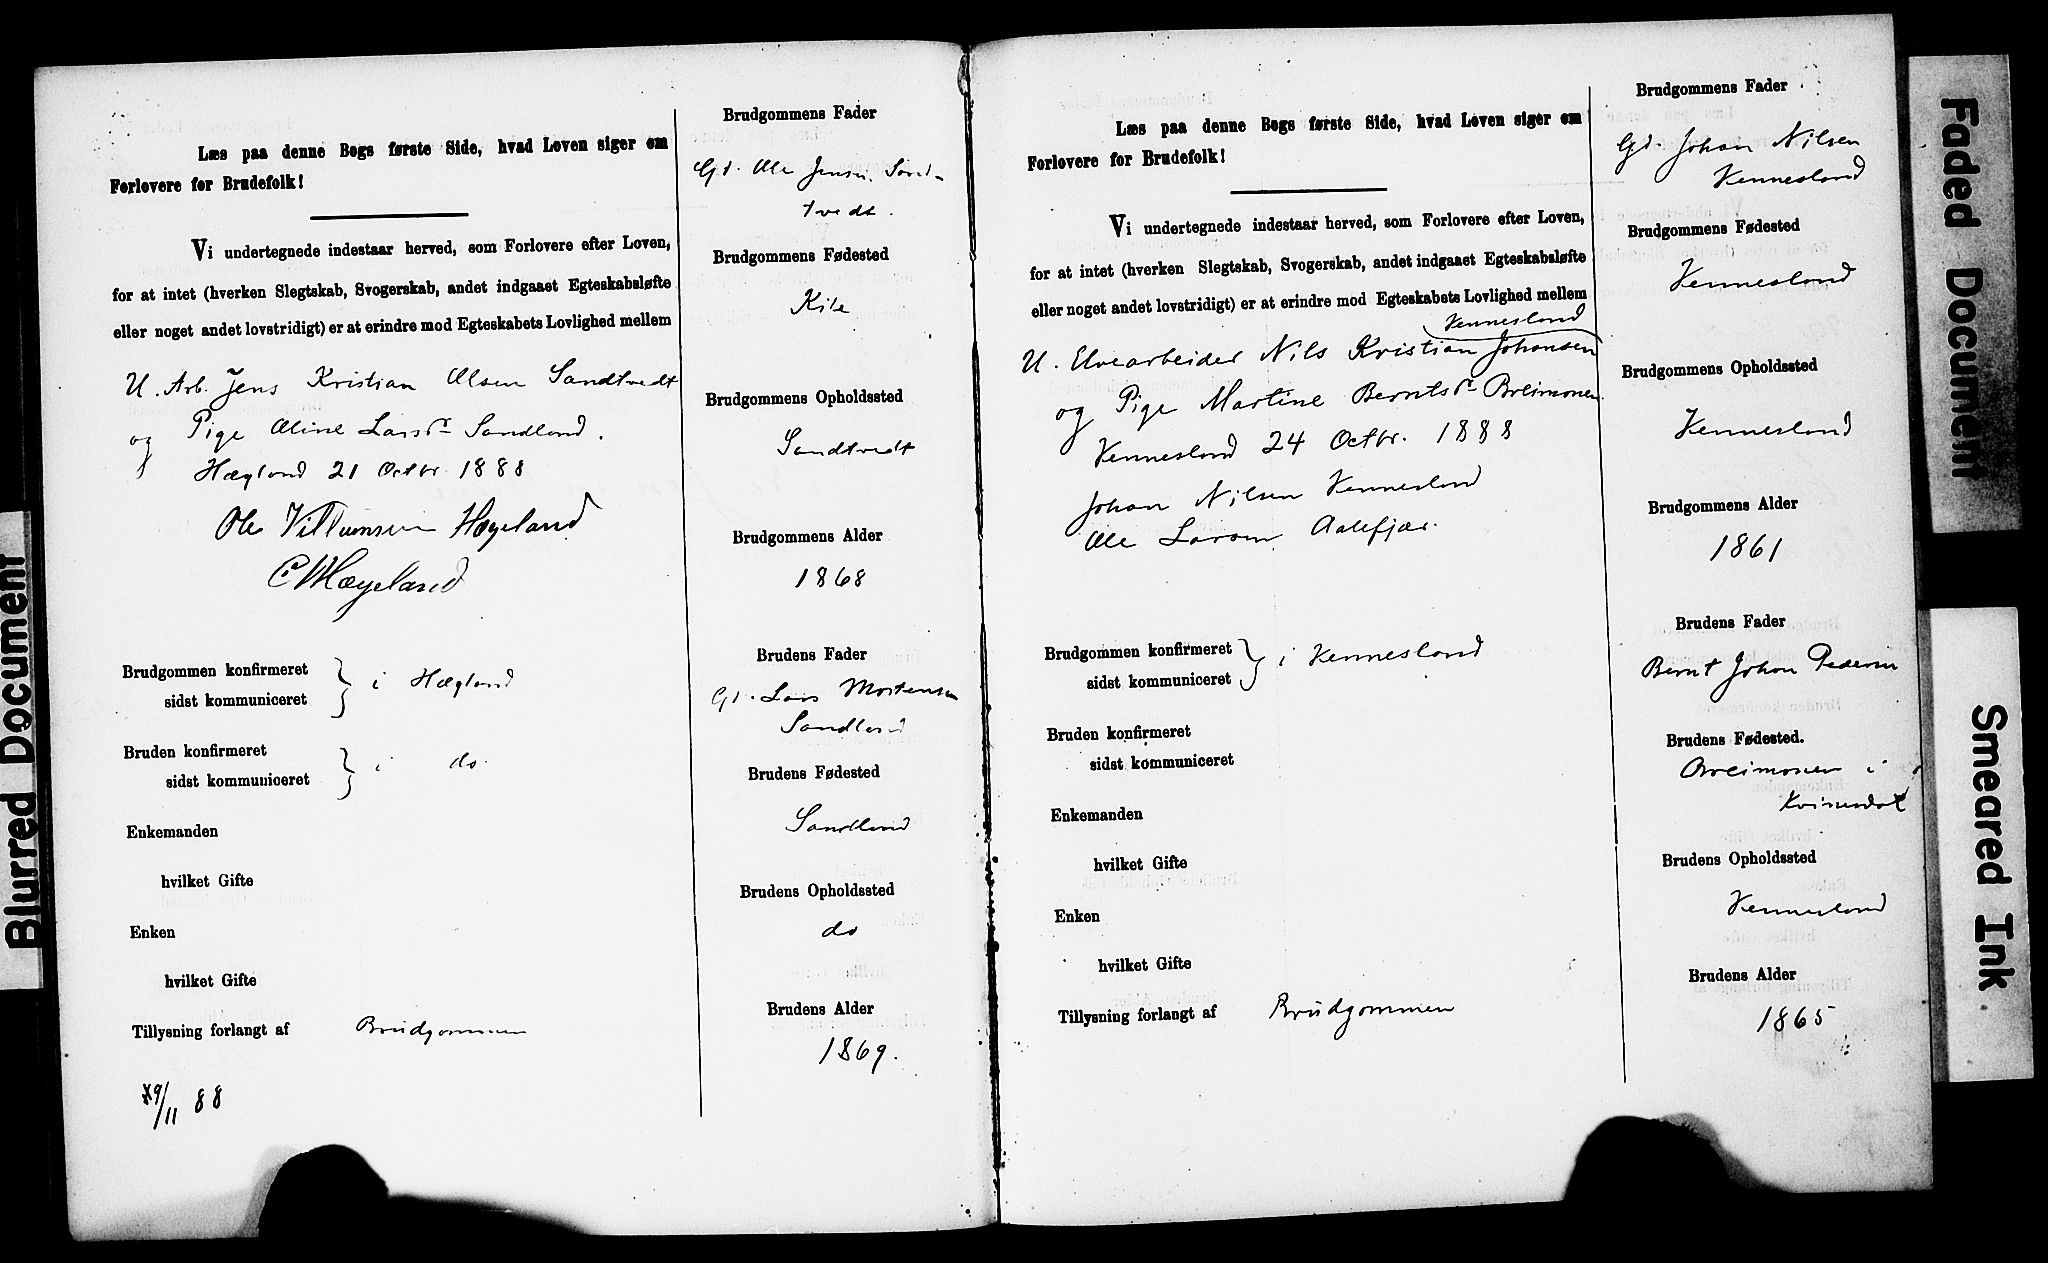 Læs paa denne Bogs første Side, hvad Loven siger om
Forlovere for Brudefolk!
Vi undertegnede indestaar herved, som Forlovere efter Loven,
for at intet (hverken Slegtskab, Svogerskab, andet indgaaet Egteskabsløfte
eller noget andet lovstridigt) er at erindre mod Egteskabets Lovlighed mellem
U. Arb. Jens Kristian Olsen Sandtvedt
og Pige Oline Larsdr Sandland.
Hægland 21 Octbr. 1888
Ole Villumsen Hægeland
Hægeland
Brudgommen konfirmeret
sidst kommuniceret } i Hægland
Bruden konfirmeret
sidst kommuniceret } i do.
Enkemanden
hvilket Gifte
Enken
hvilket Gifte
Tillysning forlangt af Brudgommen
/11 88
Brudgommens Fader
Gd. Ole Jensen Sand-
tvedt.
Brudgommens Fødested
Kile
Brudgommens Opholdssted
Sandtvedt
Brudgommens Alder
1868
Brudens Fader
Gd. Lars Mortensen
Sandland
Brudens Fødested
Sandland
Brudens Opholdssted
do
Brudens Alder
1869.
Læs paa denne Bogs første Side, hvad Loven siger om
Forlovere for Brudefolk!
Vi undertegnede indestaar herved, som Forlovere efter Loven,
for at intet (hverken Slegtskab, Svogerskab, andet indgaaet Egteskabsløfte
eller noget andet lovstridigt) er at erindre mod Egteskabets Lovlighed mellem
Vennesland
U. Elvearbeider Nils Kristian Johansen
og Pige Martine Berntsdr Breimonen
Vennesland 24 Octbr. 1888
Johan Nilsen Vennesland
Ole Larsen Aalefjær.
Brudgommen konfirmeret
sidst kommuniceret } i Vennesland
Bruden konfirmeret
sidst kommuniceret
Enkemanden
hvilket Gifte
Enken
hvilket Gifte
Tillysning forlangt af Brudgommen
Brudgommens Fader
Gd. Johan Nilsen
Vennesland
Brudgommens Fødested
Vennesland
Brudgommens Opholdssted
Vennesland
Brudgommens Alder
1861
Brudens Fader
Bernt Johan Pedersen
Brudens Fødested.
Breimonen i
Kvinesdal
Brudens Opholdssted
Vennesland
Brudens Alder
1865
Blurred Document
Faded Document
Smeared Ink